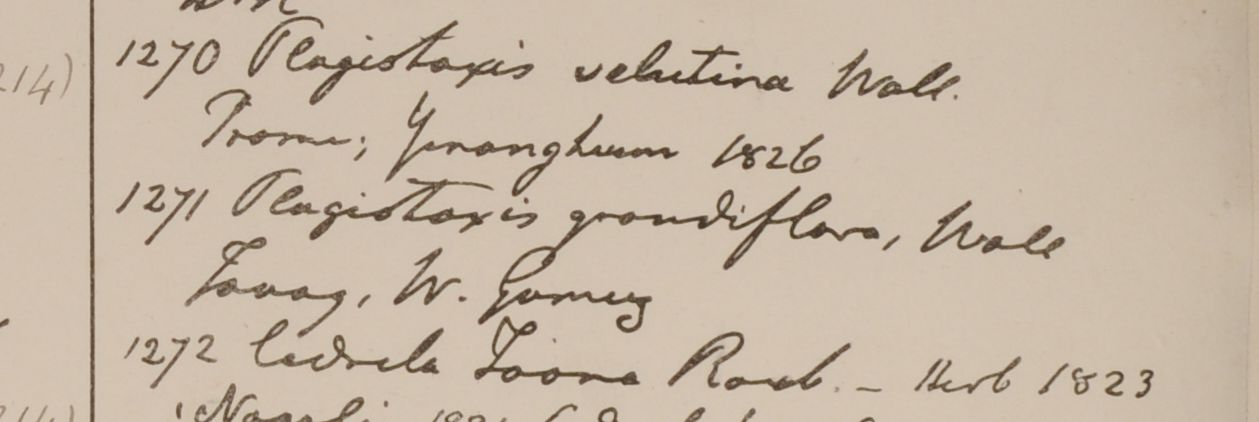 214)
1270 Plagiotaxis velutina Wall.
Prome; Yenanghuum 1826
1271 Plagiotaxis grandiflora, Wall
Tavoy, W. Gomez
1272 Cedrela Toona Roxb. – Herb 1823